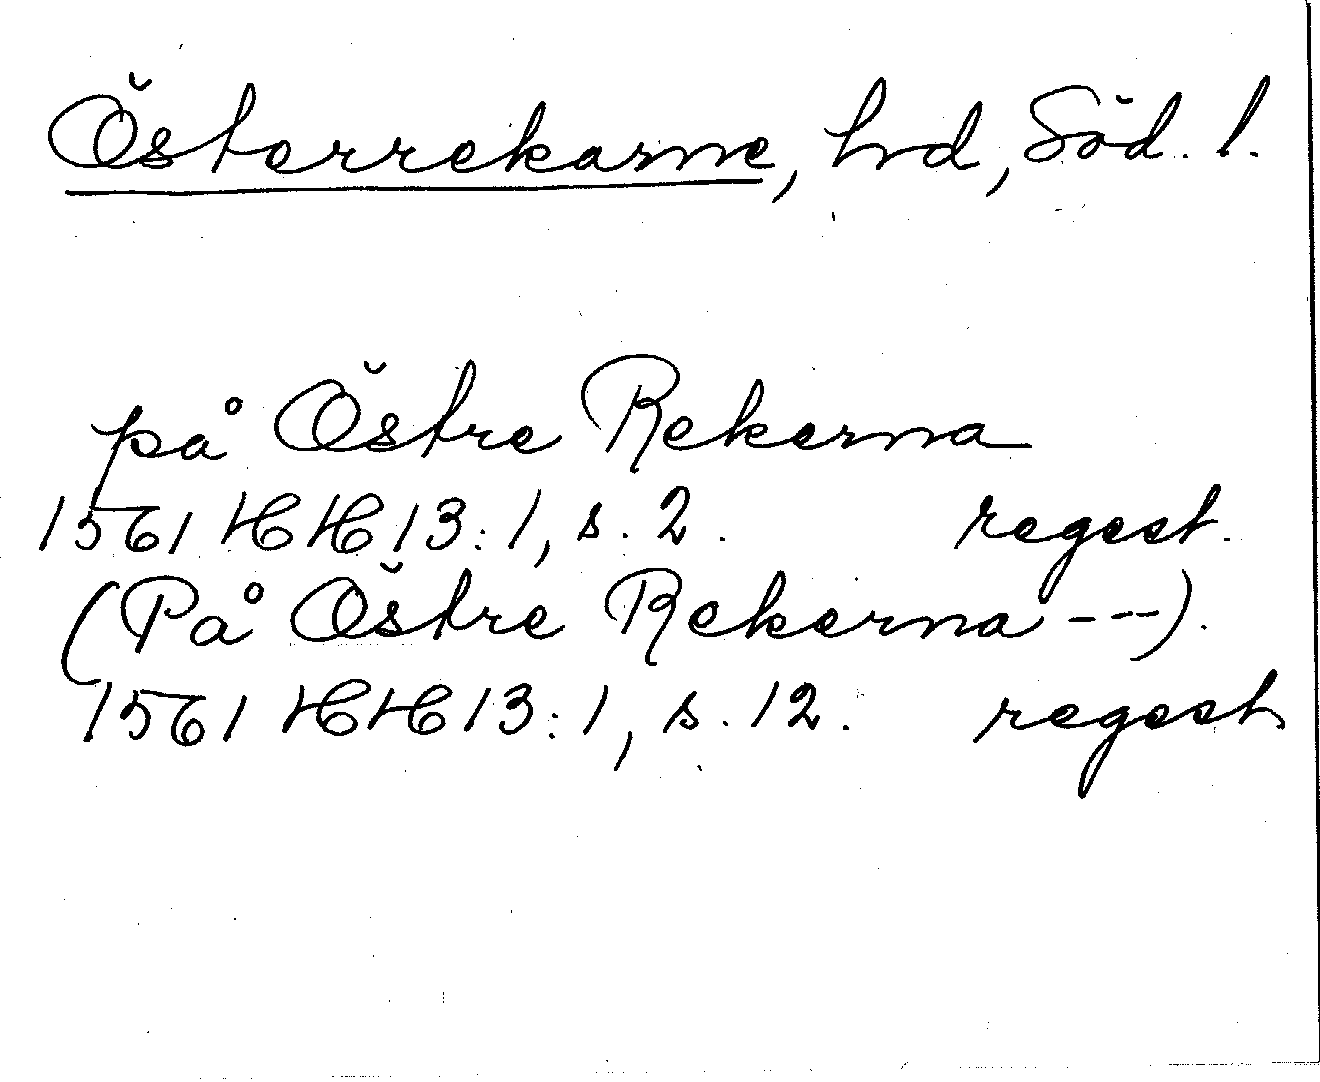 Österrekarne, hrd, Söd. l.
på Östre Rekerna
1561 HH 13:1, s. 2. regest.
(På Östre Rekerna ---).
1561 HH 13:1, s. 12. regest.